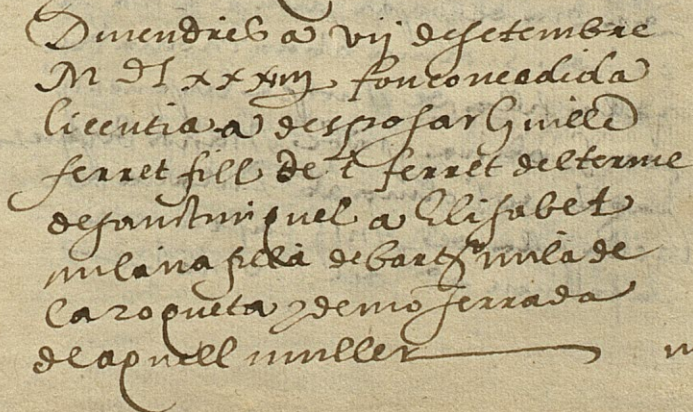 Divendres a vij de setembre
M D l xxxiiij fou concedida
licentia a desposar Guillē
ferret fill de t ferret del terme
de sanct miquel a Elisabet
milana filla de bartᵘ mila de
la roqueta y de mõserrada
de aquell muller